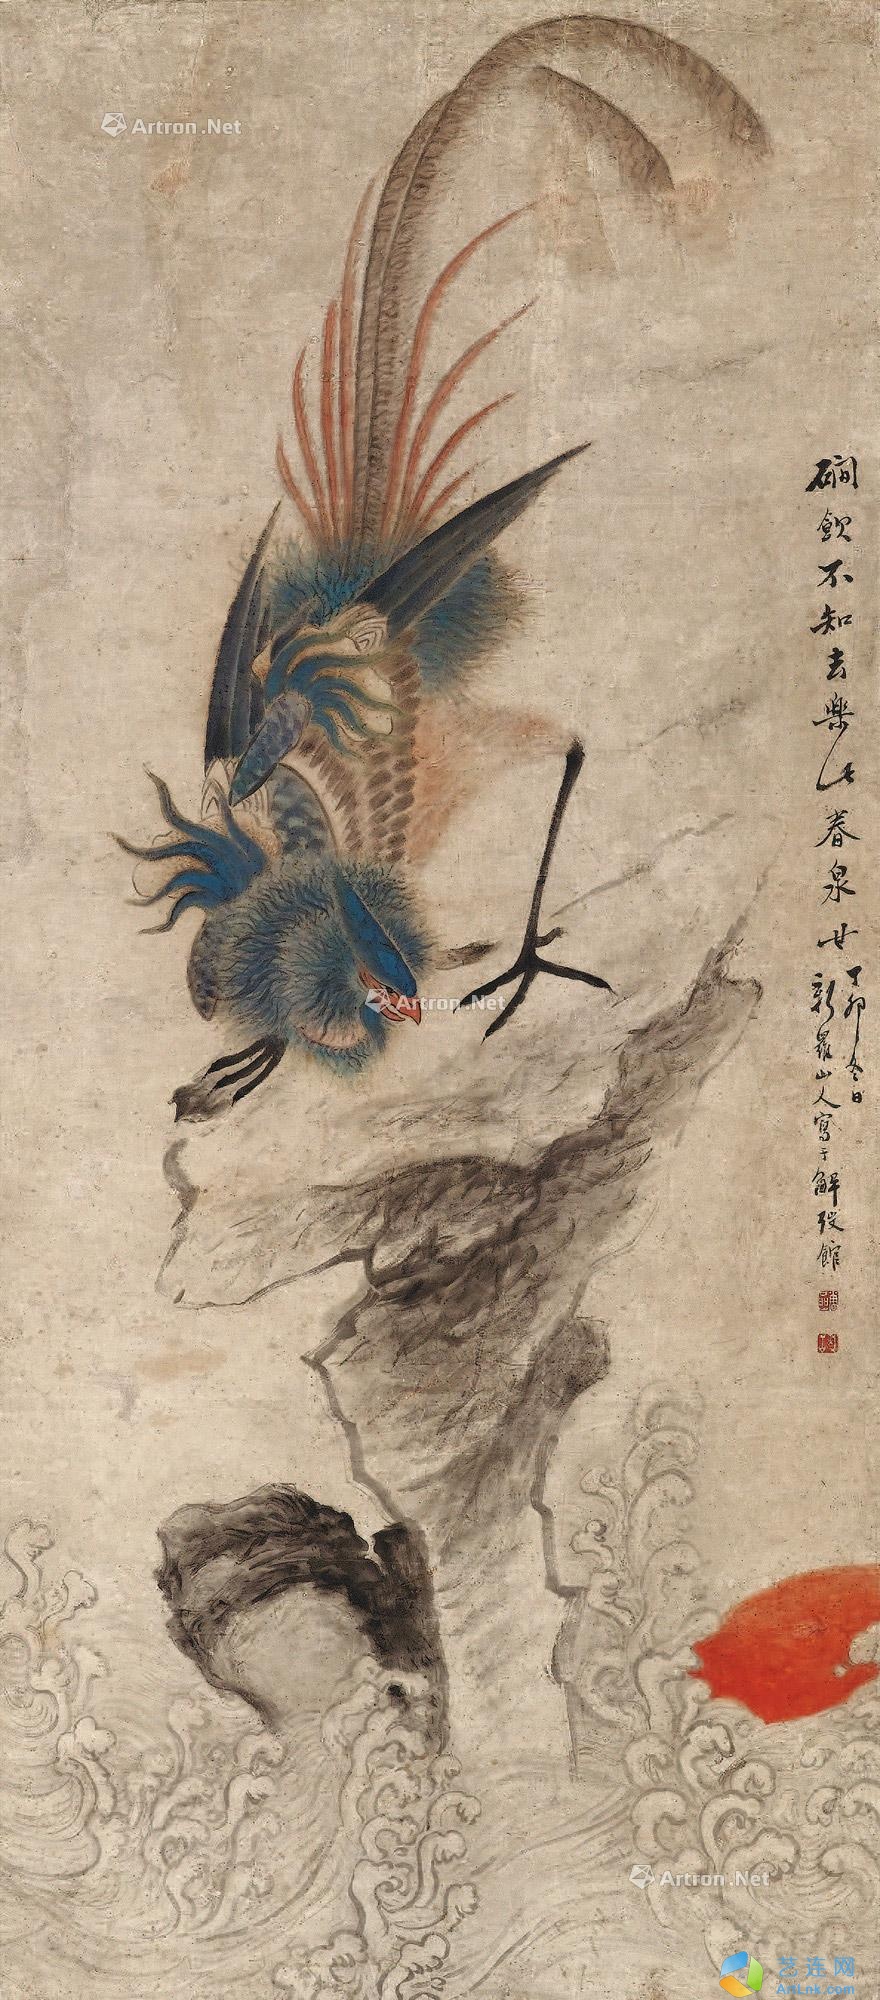 Artron.Net
磵飲不知去樂此春泉廿
丁卯冬日
新羅山人寫于解弢館
Artron.Net
Artron.Net
艺连网
ArtLnk.com